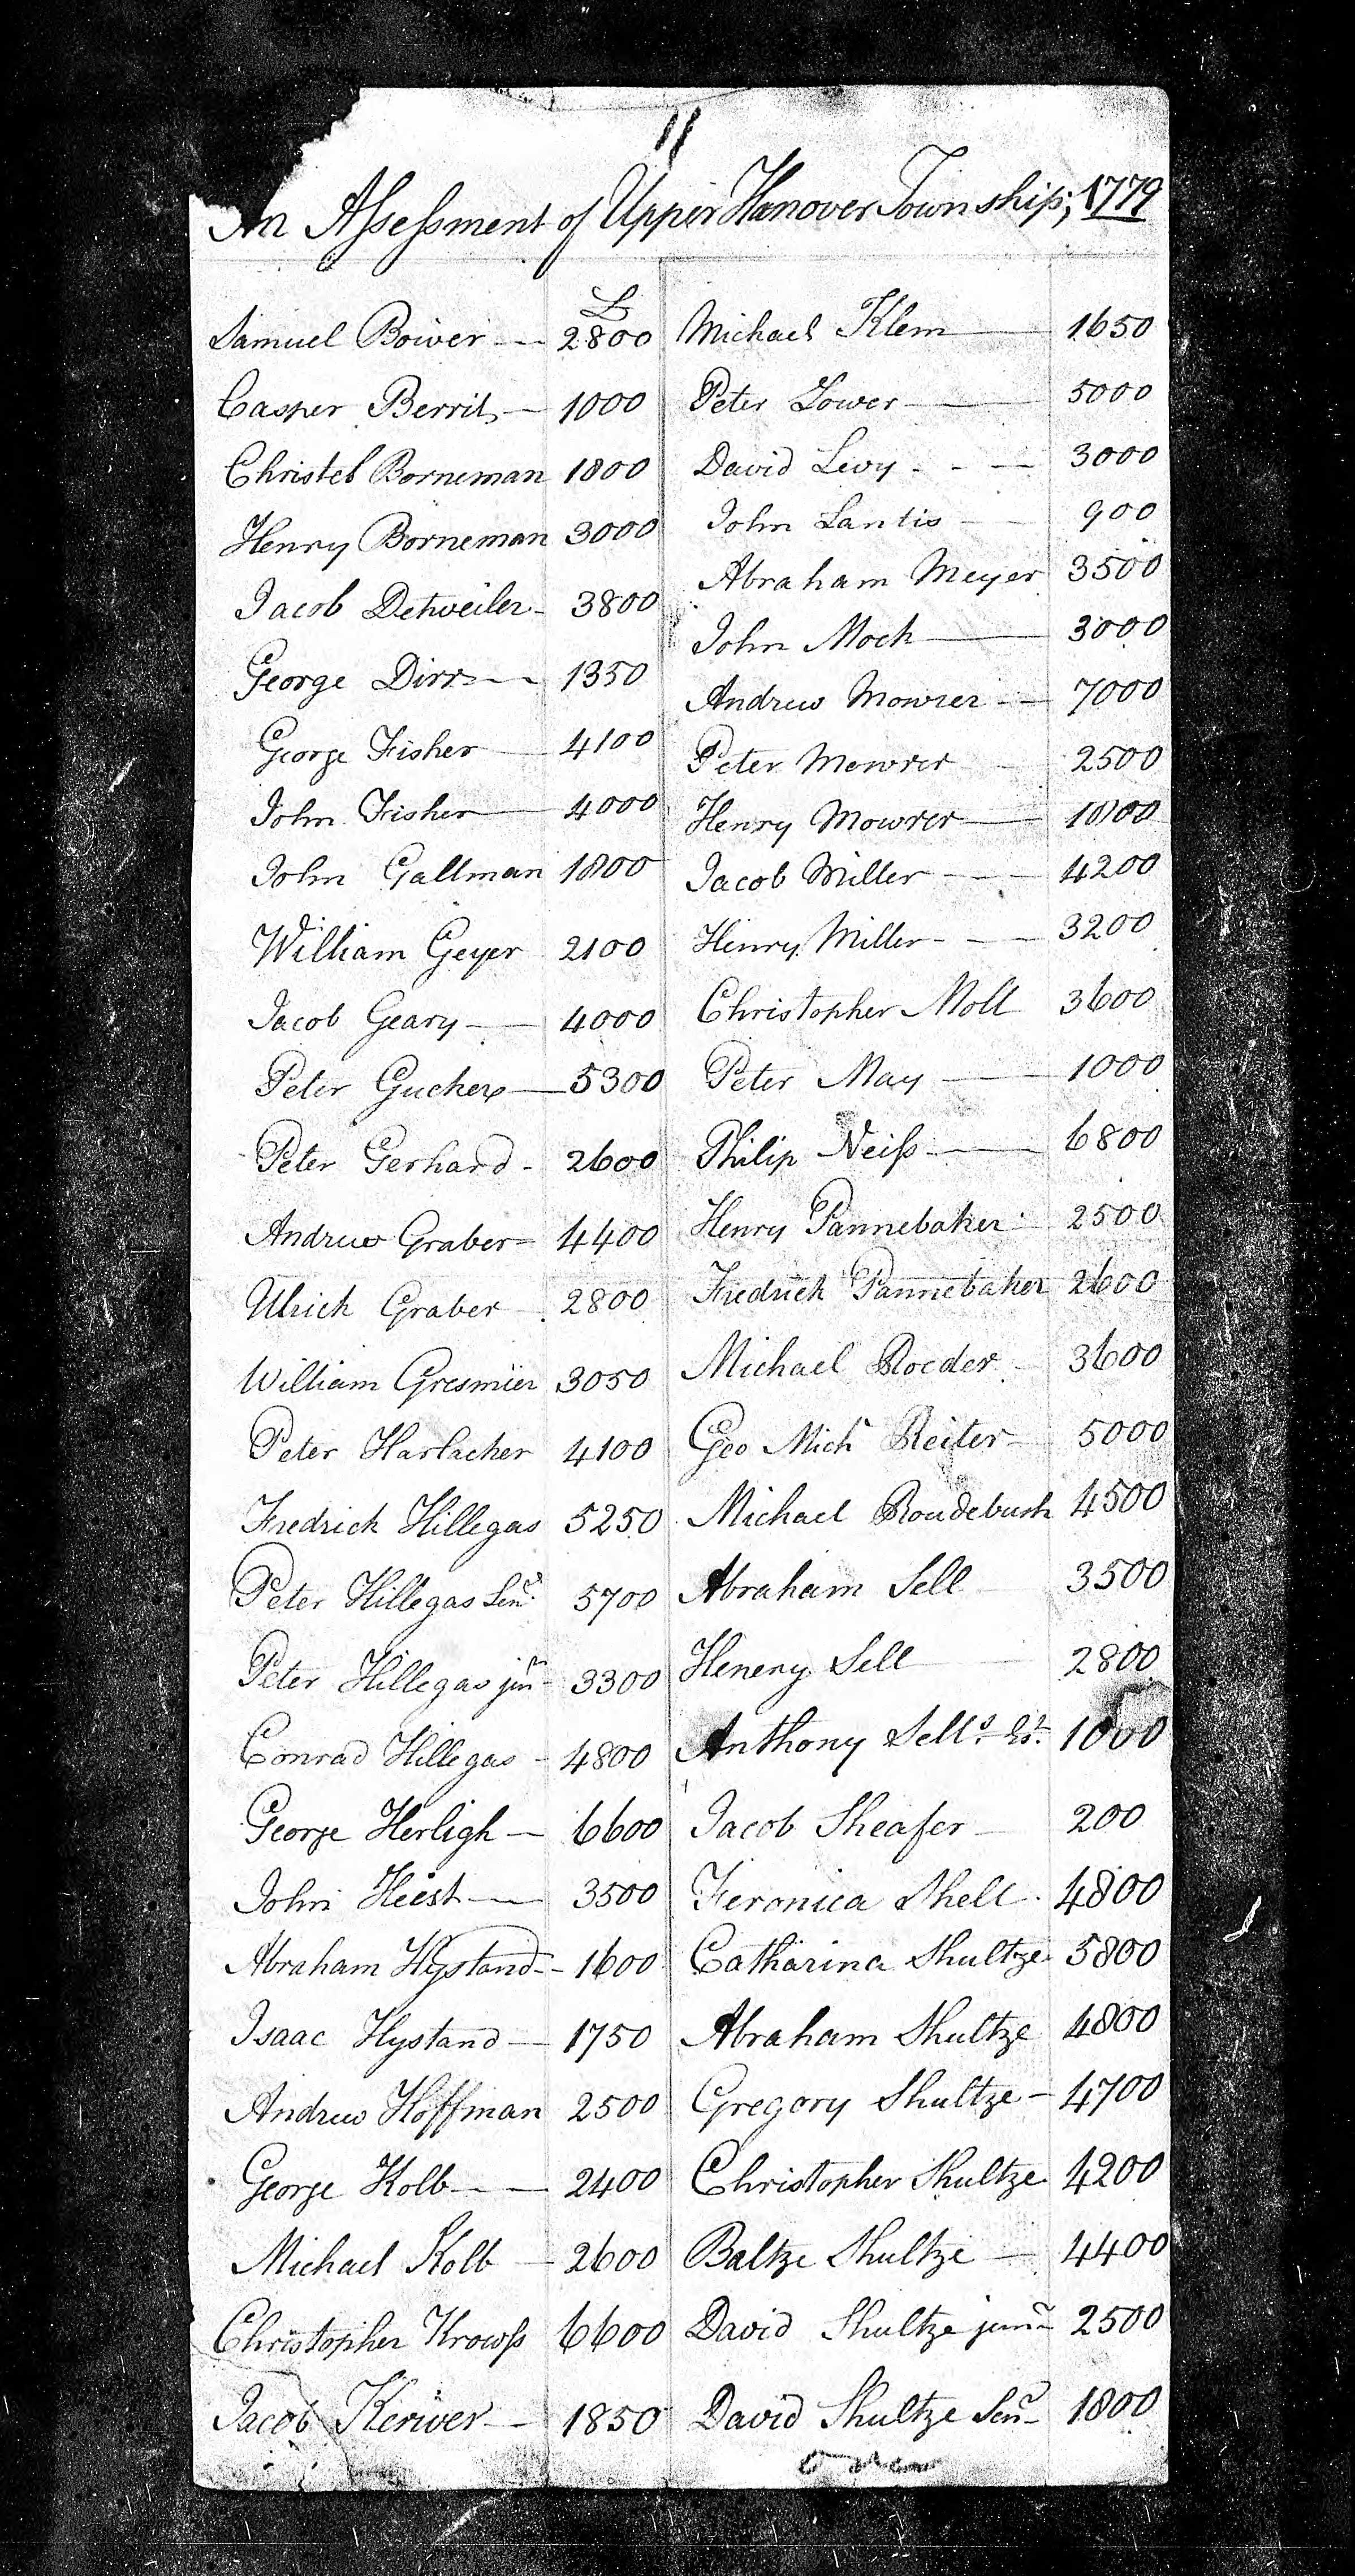 11
An Assessment of Upper Hanover Township, 1779
£
Samuel Boiver 2800
Casper Berrit 1000
Christel Borneman 1800
Henry Borneman 3000
Jacob Detweiler 3800
George Dirr 1350
George Fisher 4100
John Fisher 4000
John Gallman 1800
William Geyer 2100
Jacob Geary 4000
Peter Gucher 5300
Peter Gerhard 2600
Andrew Graber 4400
Ulrich Graber 2800
William Gresmier 3050
Peter Harlacher 4100
Fredrich Hillegas 5250
Peter Hillegas Senr. 5700
Peter Hillegas junr 3300
Conrad Hillegas 4800
George Herligh 6600
John Heist 3500
Abraham Hystand 1600
Isaac Hystand 1750
Andrew Hoffman 2500
George Kolb 2400
Michael Kolb 2600
Christopher Krowss 6600
Jacob Keriver 1850
Michael Klem 1650
Peter Lower 5000
David Levy 3000
John Lantis 900
Abraham Meyer 3500
John Moch 3000
Andrew Mowrer 7000
Peter Mowrer 2500
Henry Mowrer 1800
Jacob Miller 4200
Henry Miller 3200
Christopher Moll 3600
Peter May 1000
Philip Neiss 6800
Henry Pannebaker 2500
Fredrich Pannebaker 2600
Michael Roeder 3600
Geo Michl Reiter 5000
Michael Roudebush 4500
Abraham Sell 3500
Henery Sell 2800
Anthony Sells Est. 1000
Jacob Sheafer 200
Feronica Shell 4800
Catharina Shultze 5800
Abraham Shultze 4800
Gregory Shultze 4700
Christopher Shultze 4200
Baltze Shultze 4400
David Shultze junr 2500
David Shultze Senr 1800